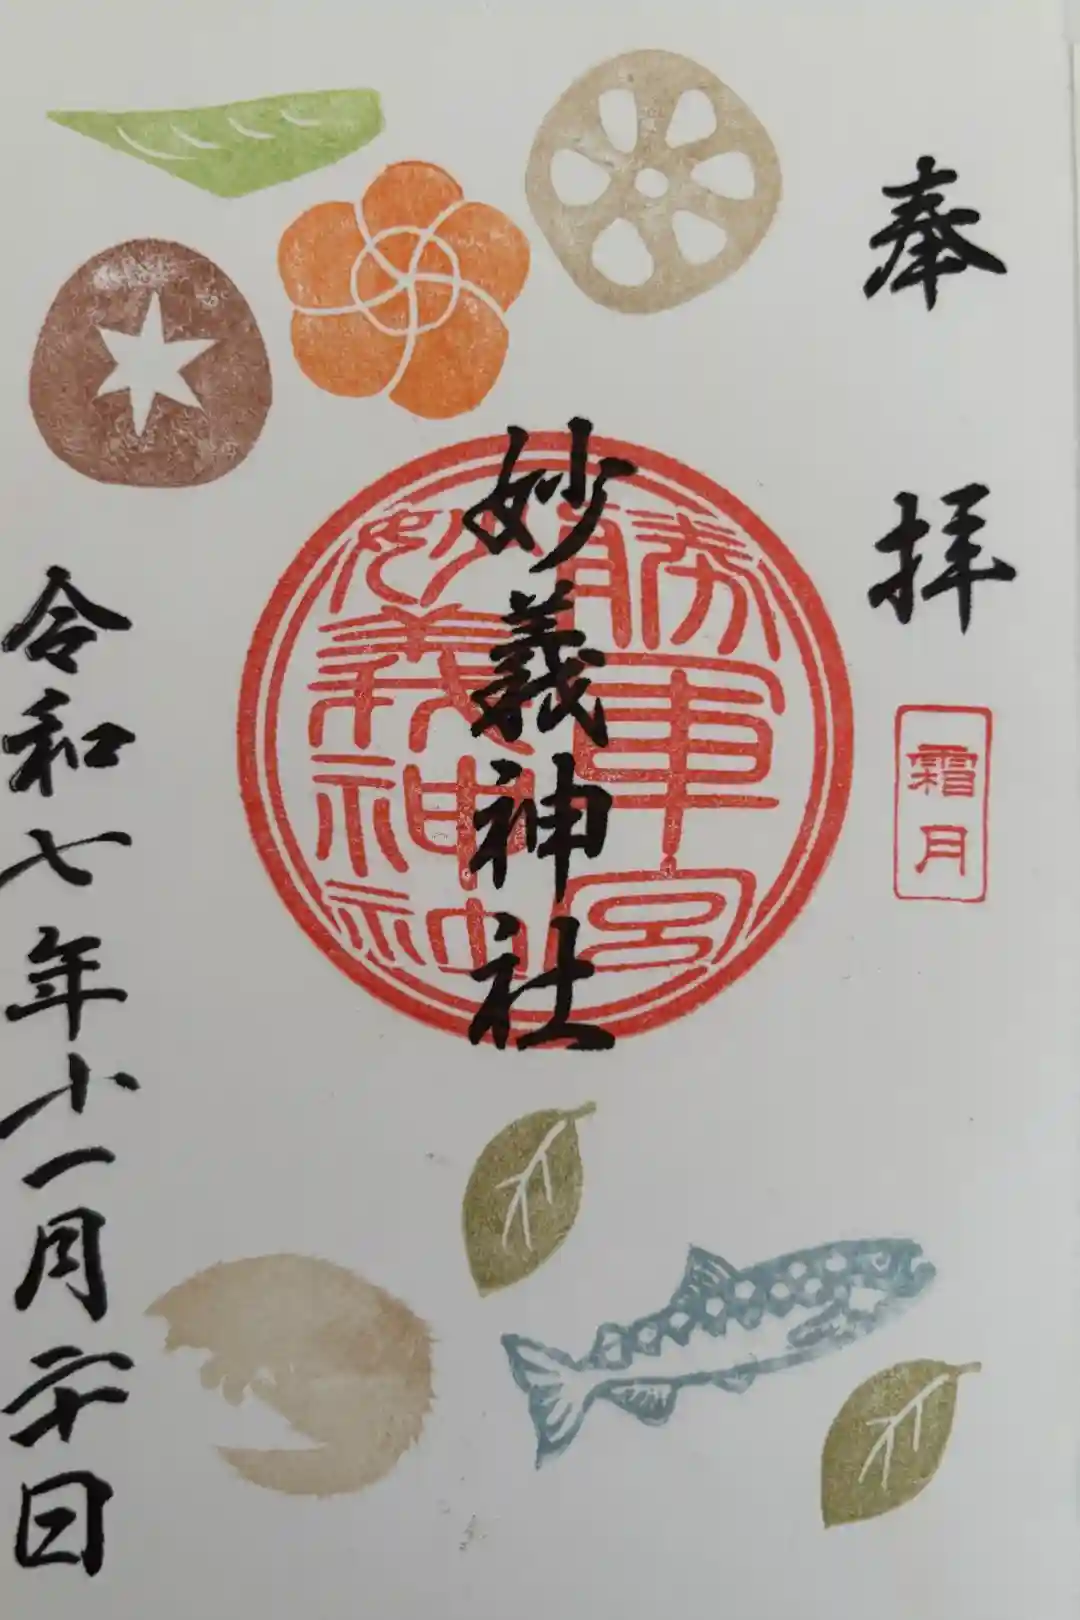 奉拝
霜月
勝軍宮
妙義神社
妙義神社
令和七年十一月二十日